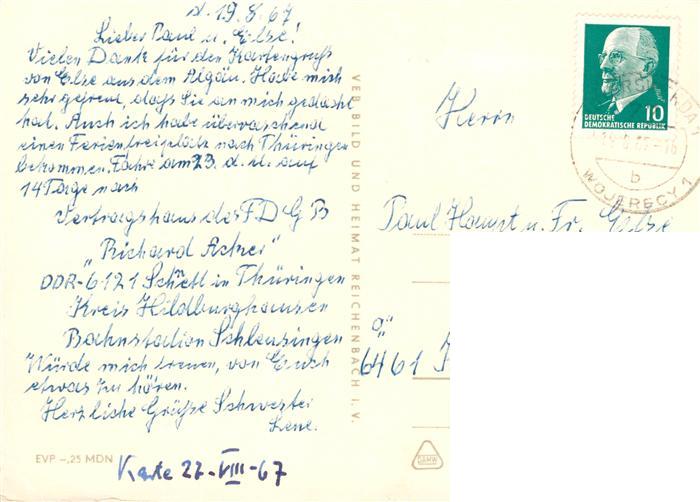 d. 19.8.67
Lieber Paul u. Else!
Vielen Dank für den Kartengruß
von Else aus dem Algäu. Habe mich
sehr gefreut, daß Sie an mich gedacht
hat. Auch ich habe überraschend
einen Ferienfreiplatz nach Thüringen
bekommen. Fahre am 23. d. M. auf
14 Tage nach
Vertragshaus des F.D.G.B
"Richard Acker"
DDR-6121 in Thüringen
Kreis Hildburghausen
Bahnstation Schleusingen
Würde mich freuen, von Euch
etwas zu hören.
Herzliche Grüße Schwester
Lene.
EVP -,25 MDN
Karte 27-VIII-67
VEB BILD UND HEIMAT REICHENBACH I. V.
10
DEUTSCHE
DEMOKRATISCHE REPUBLIK
b
WOJERECY 1
Herrn
Paul u. Fr. Else
6461